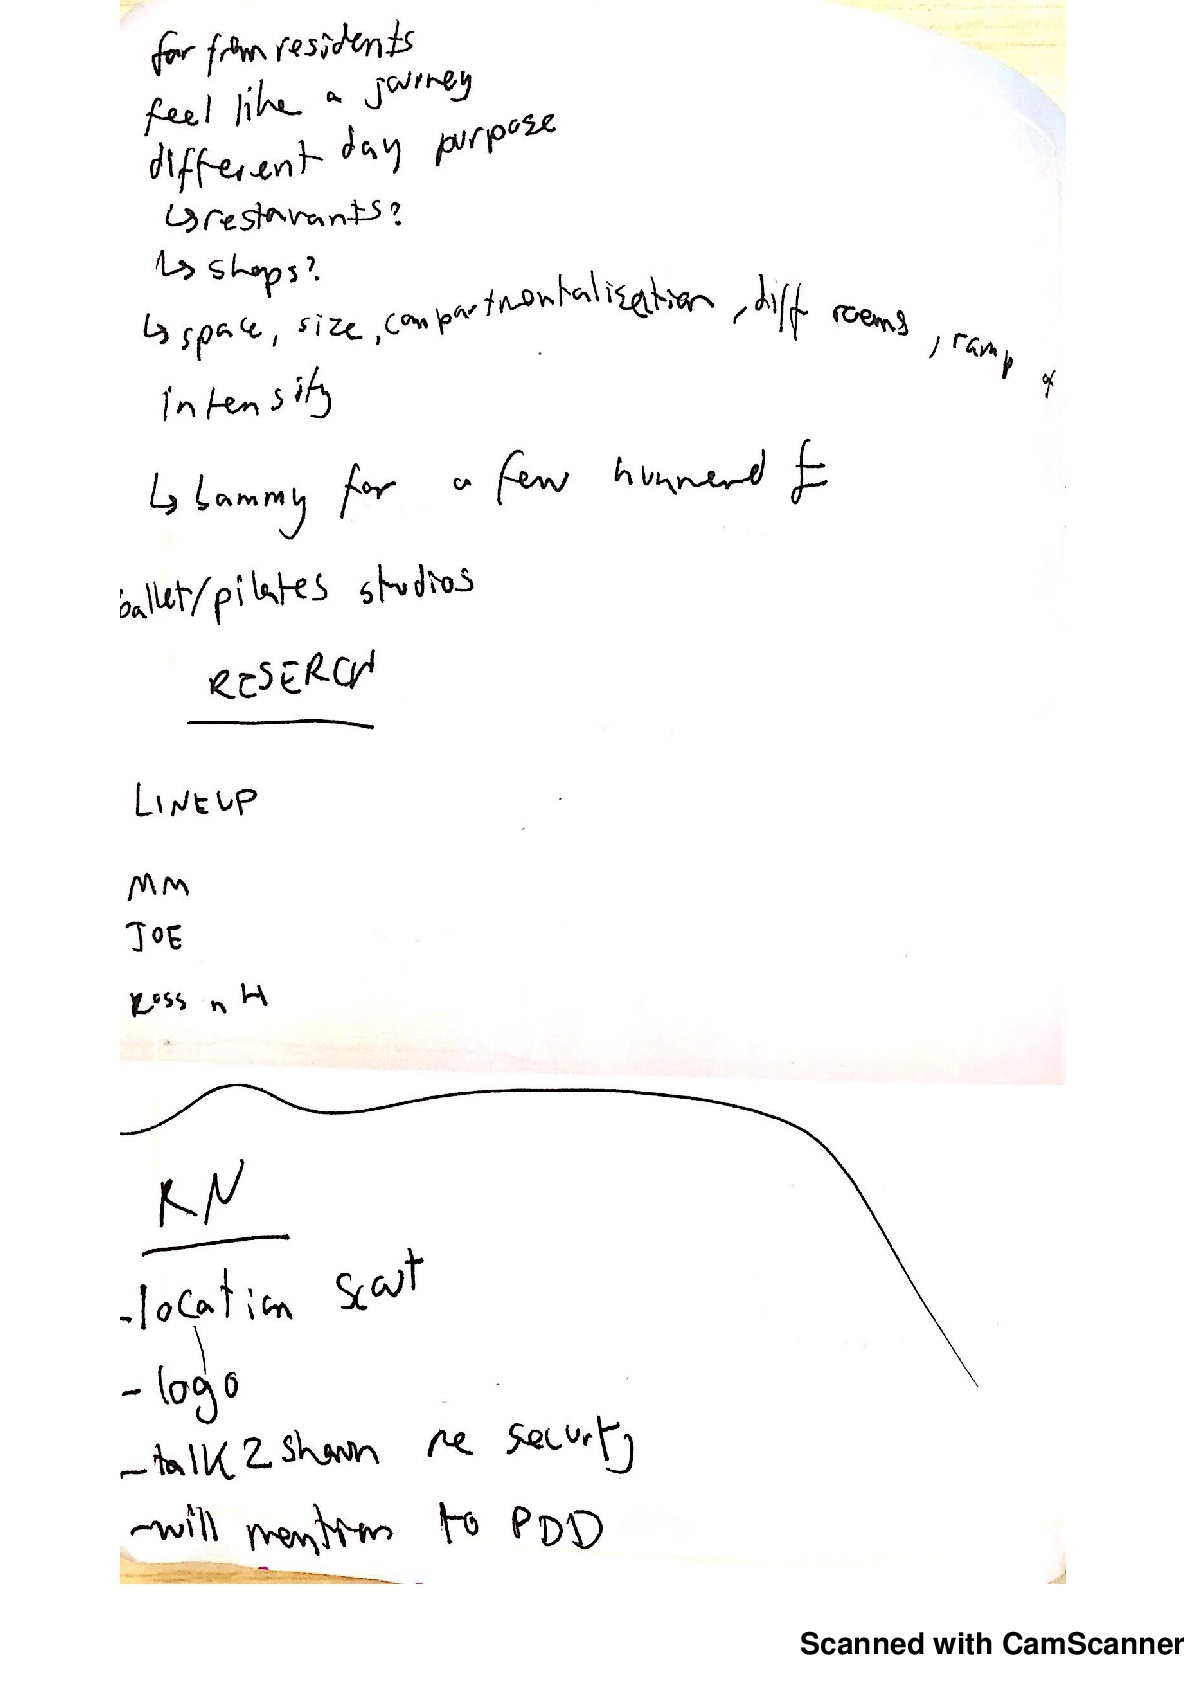 far from residents
feel like a journey
different day purpose
↳ restaurants?
↳ shops?
↳ space, size, compartmentalisation, diff rooms, ramp of
intensity
↳ for a few hunnerd £
ballet/pilates studios
RESERCH
LINEUP
MM
JOE
ROSS n H
RN
- location scout
- logo
- talk 2 shawn re security
- will mention to PDD
Scanned with CamScanner